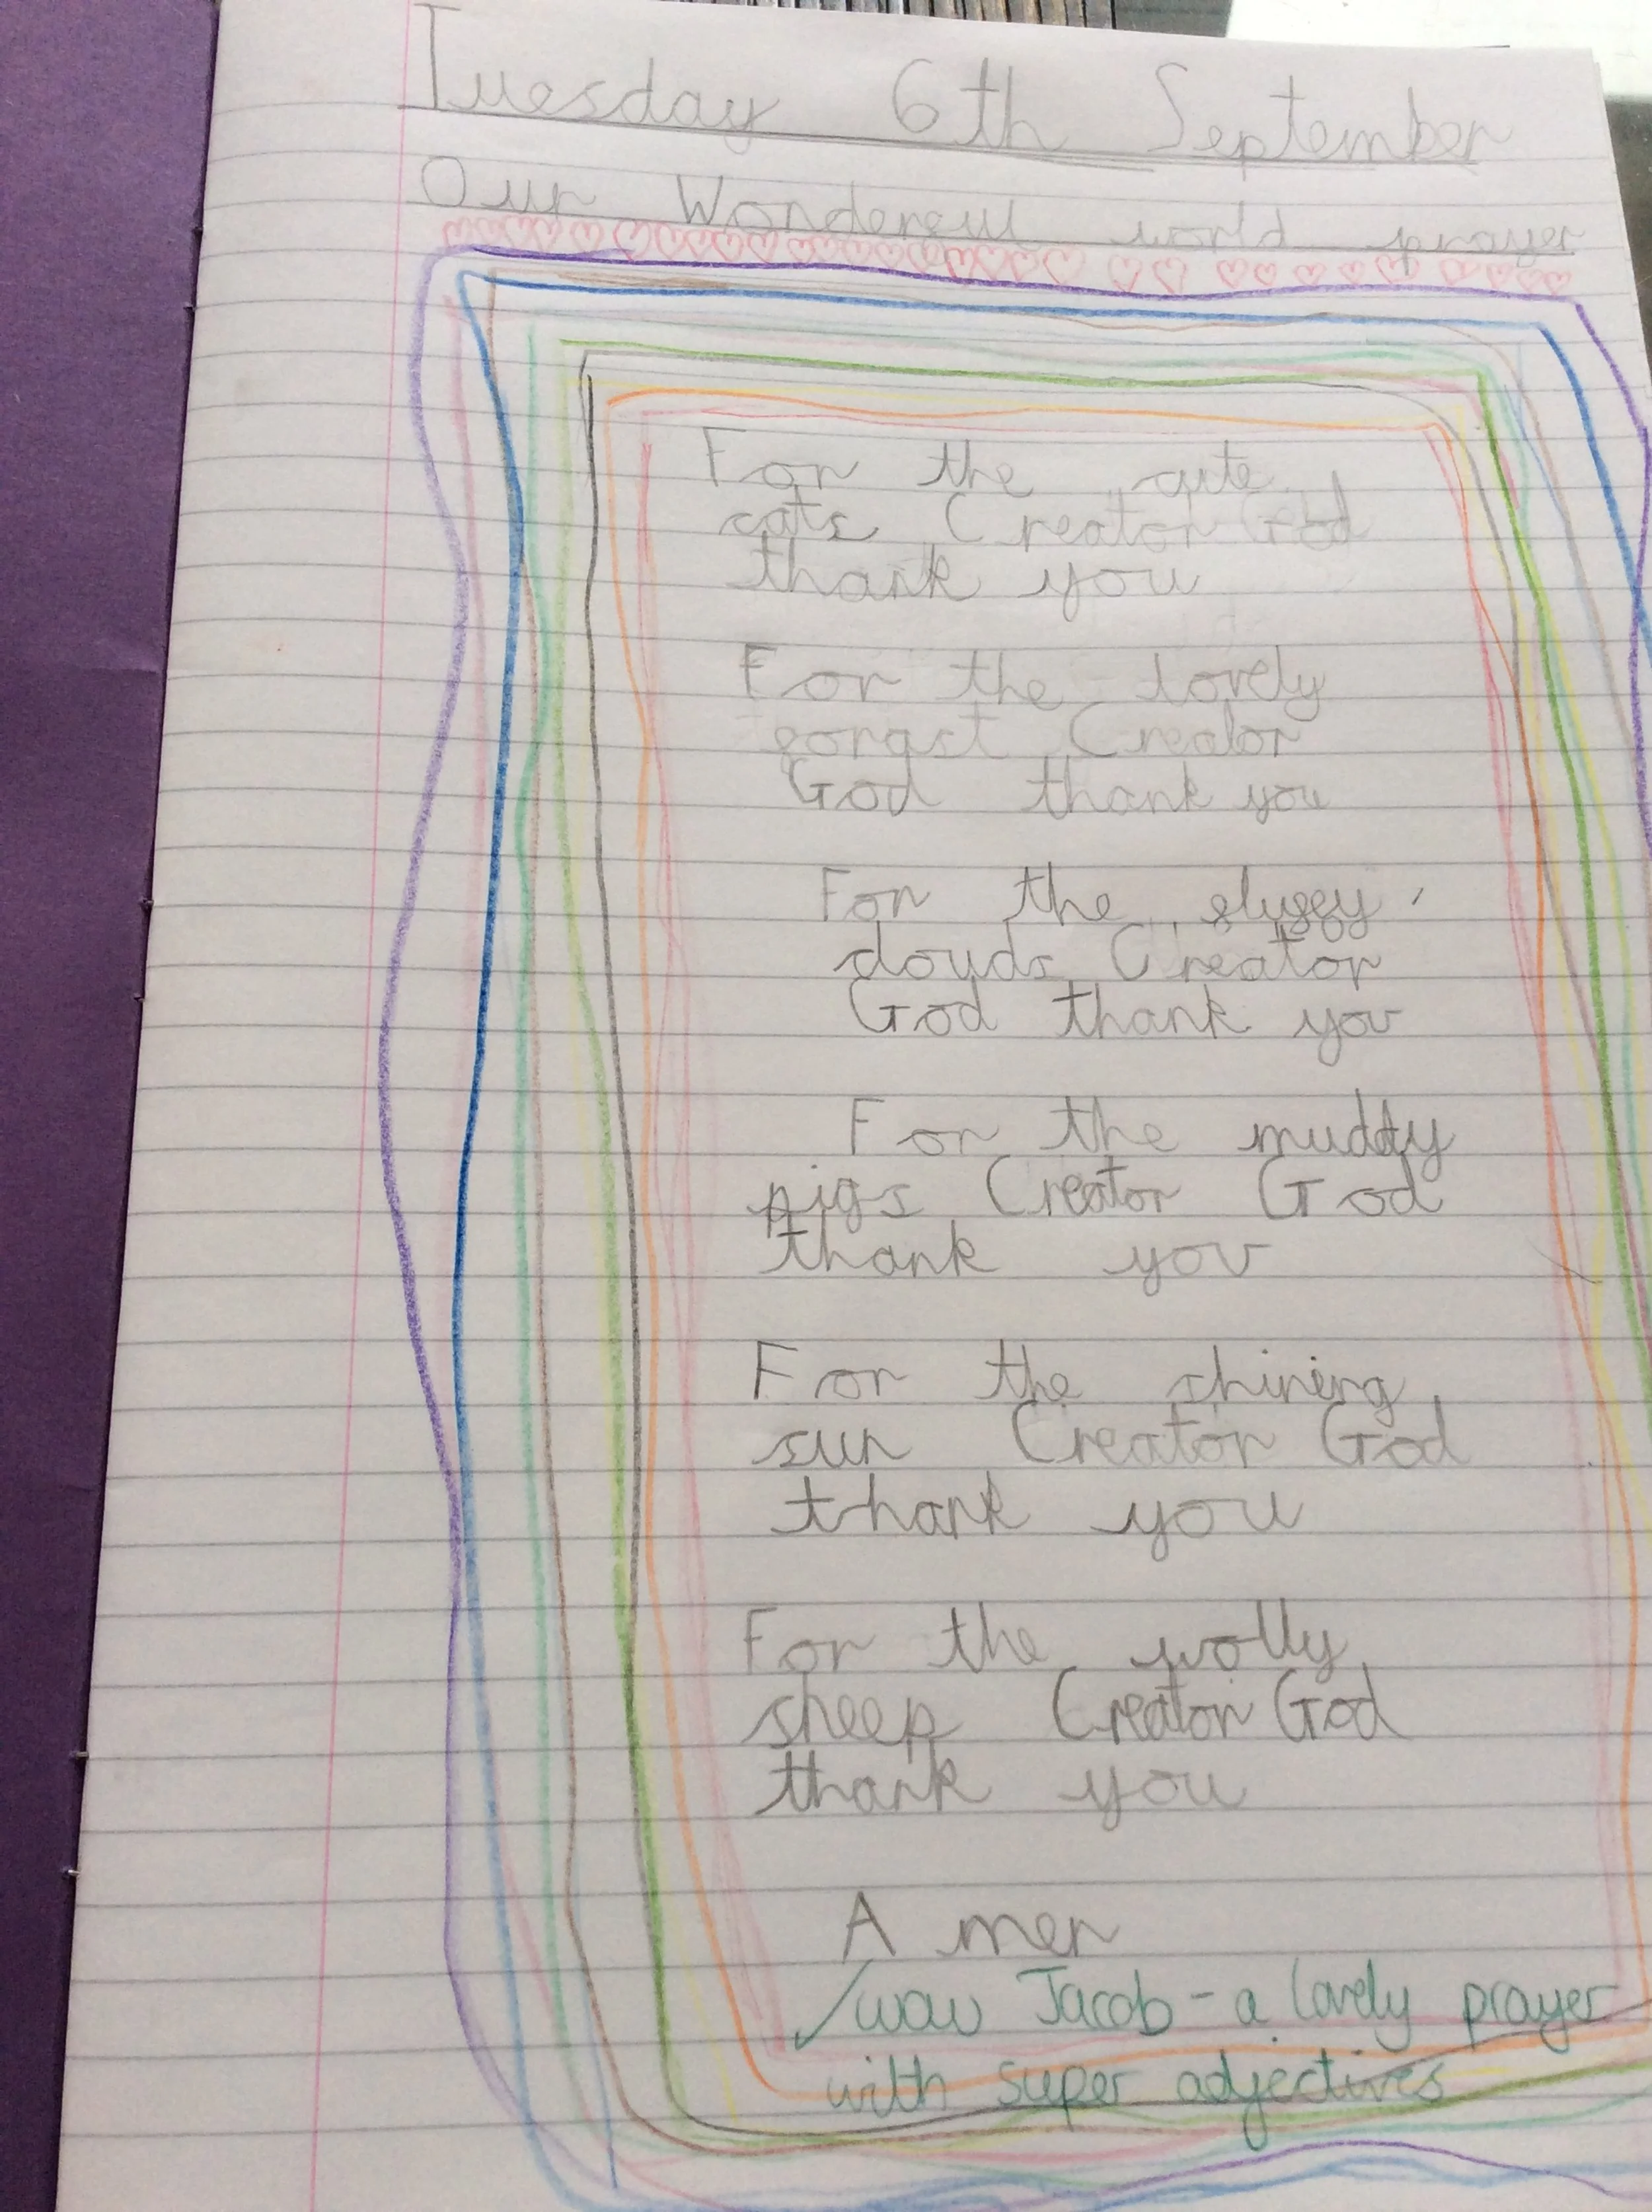 Tuesday 6th September
Our Wonderful world prayer
For the cute
cats Creator God
thank you
For the lovely
forast Creator
God thank you
For the fluffy
clouds Creator
God thank you
For the muddy
pigs Creator God
thank you
For the shining
sun Creator God
thank you
For the wolly
sheep Creator God
thank you
A men
✓wow Jacob - a lovely prayer
with super adjectives